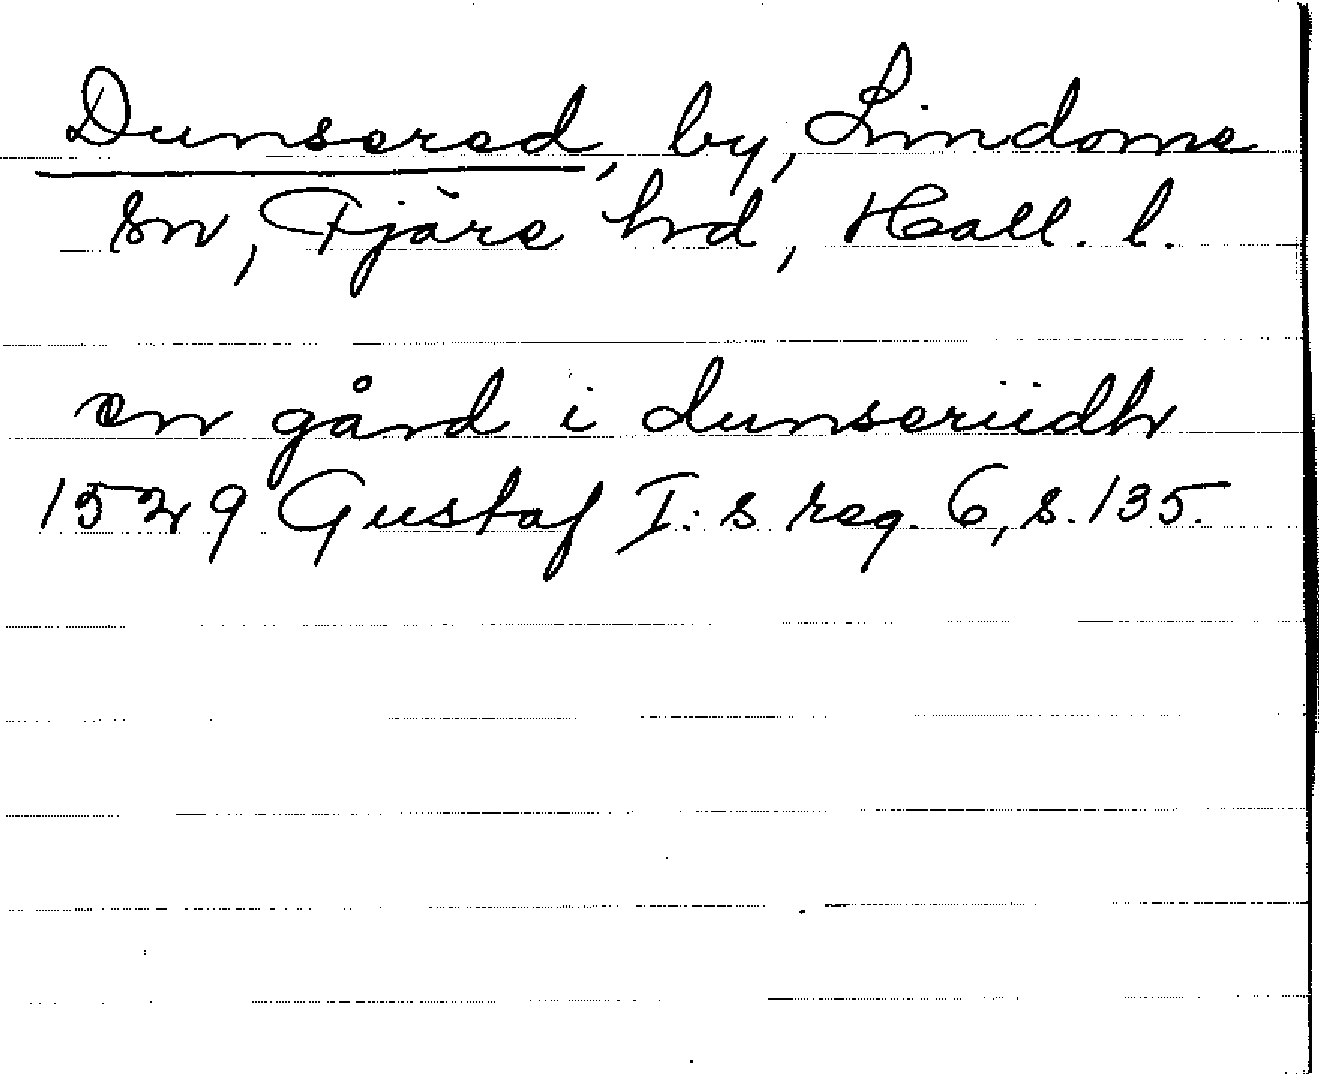 Dunsered, by, Lindome
sn, Fjäre hd, Hall. l.
en gård i dunseriidh
1529 Gustaf I:s reg. 6, s. 135.